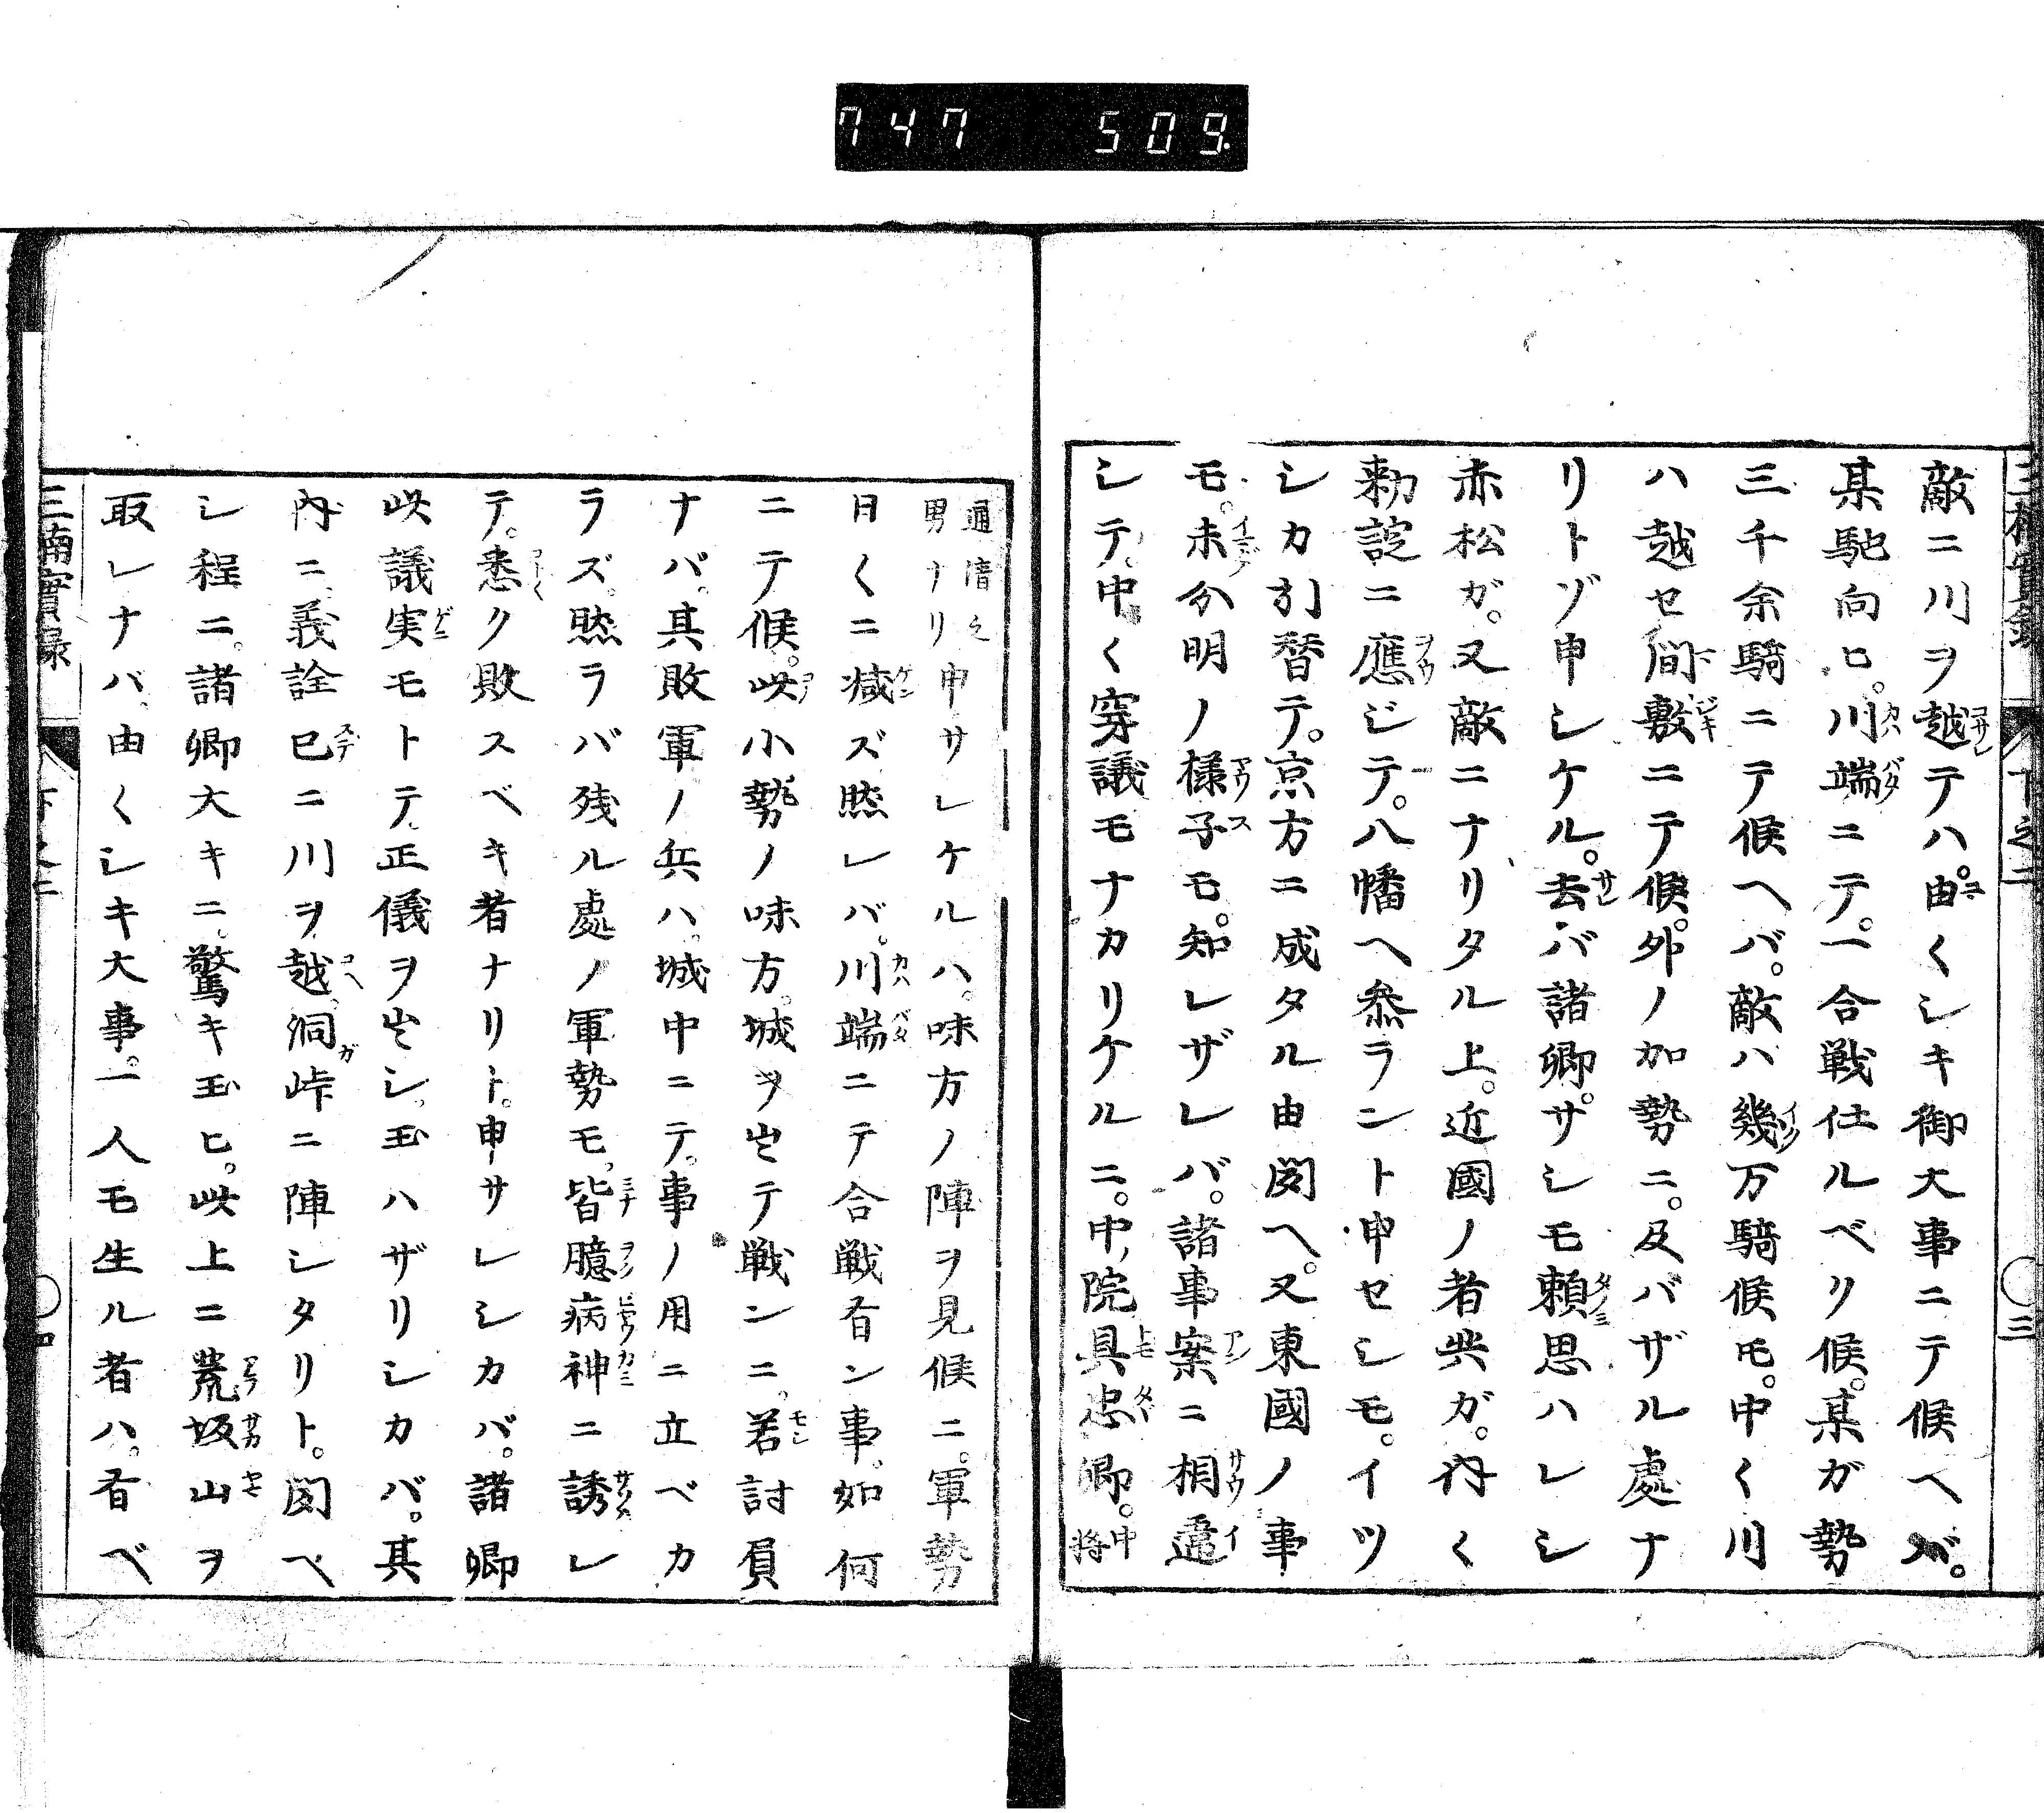 747 509.
敵ニ川ヲ越テハ。由〱シキ御大事ニテ候ヘバ。
某馳向ヒ。川端ニテ。一合戦仕ルベリ候。某ガ勢
三千余騎ニテ候ヘバ。敵ハ幾万騎候モ。中〱川
ハ越セ間敷ニテ候。外ノ加勢ニ。及バザル處ナ
リトゾ申シケル。去バ諸卿。サシモ頼思ハレシ
赤松ガ。又敵ニナリタル上。近國ノ者共ガ。内〱
勅諚ニ應ジテ。八幡ヘ參ラントト申セシモ。イツ
シカ引替テ。京方ニ成タル由聞ヘ。又東國ノ事
モ。未分明ノ様子モ。知レザレバ。諸事案ニ相違
シテ。中〱穿議モナカリケルニ。中ノ院具忠卿。中将
三楠實録 下之二 三
通清之男ナリ申サレケルハ。味方ノ陣ヲ見候ニ。軍勢
日〱ニ减ズ然レバ。川端ニテ合戦有ン事。如何
ニテ候。此小勢ノ味方。城ヲ出テ戦ンニ。若討負
ナバ。其敗軍ノ兵ハ。城中ニテ。事ノ用ニ立ベカ
ラズ。然ラバ残ル處ノ軍勢モ。皆臆病神ニ誘レ
テ。悉ク敗スベキ者ナリト。申サレシカバ。諸卿
此議実モトテ。正儀ヲ出シ。玉ハザリシカバ。其
内ニ。義詮已ニ川ヲ越。洞ガ峠ニ陣シタリト。聞ヘ
シ程ニ。諸卿大キニ。驚キ玉ヒ。此上ニ荒坂山ヲ
取レナバ。由〱シキ大事。一人モ生ル者ハ。有ベ
三楠實録 下之二 四